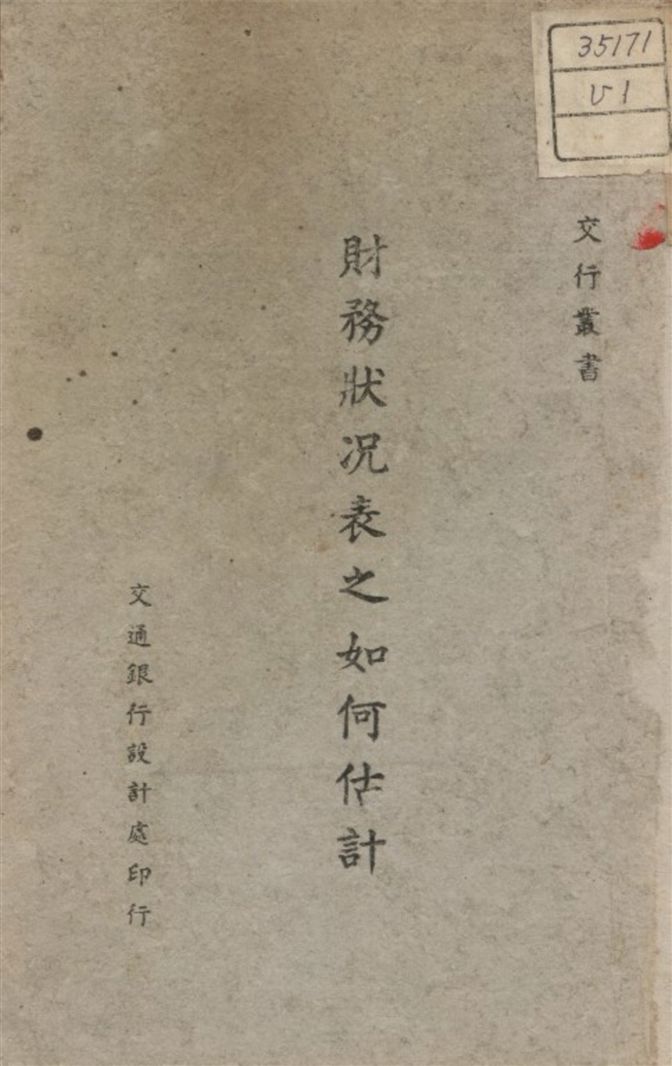 35171
V1
交行叢書
財務狀況表之如何估計
交通銀行設計處印行